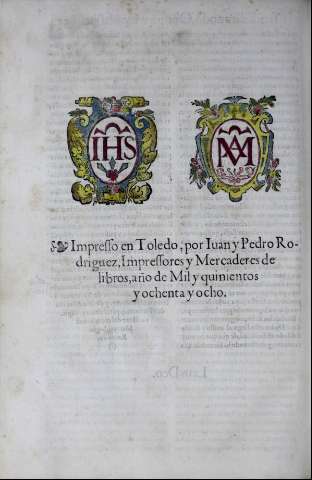 IHS
MA
Impresso en Toledo, por Iuan y Pedro Ro-
driguez, Impressores y Mercaderes de
libros, año de Mil y quinientos
y ochenta y ocho.